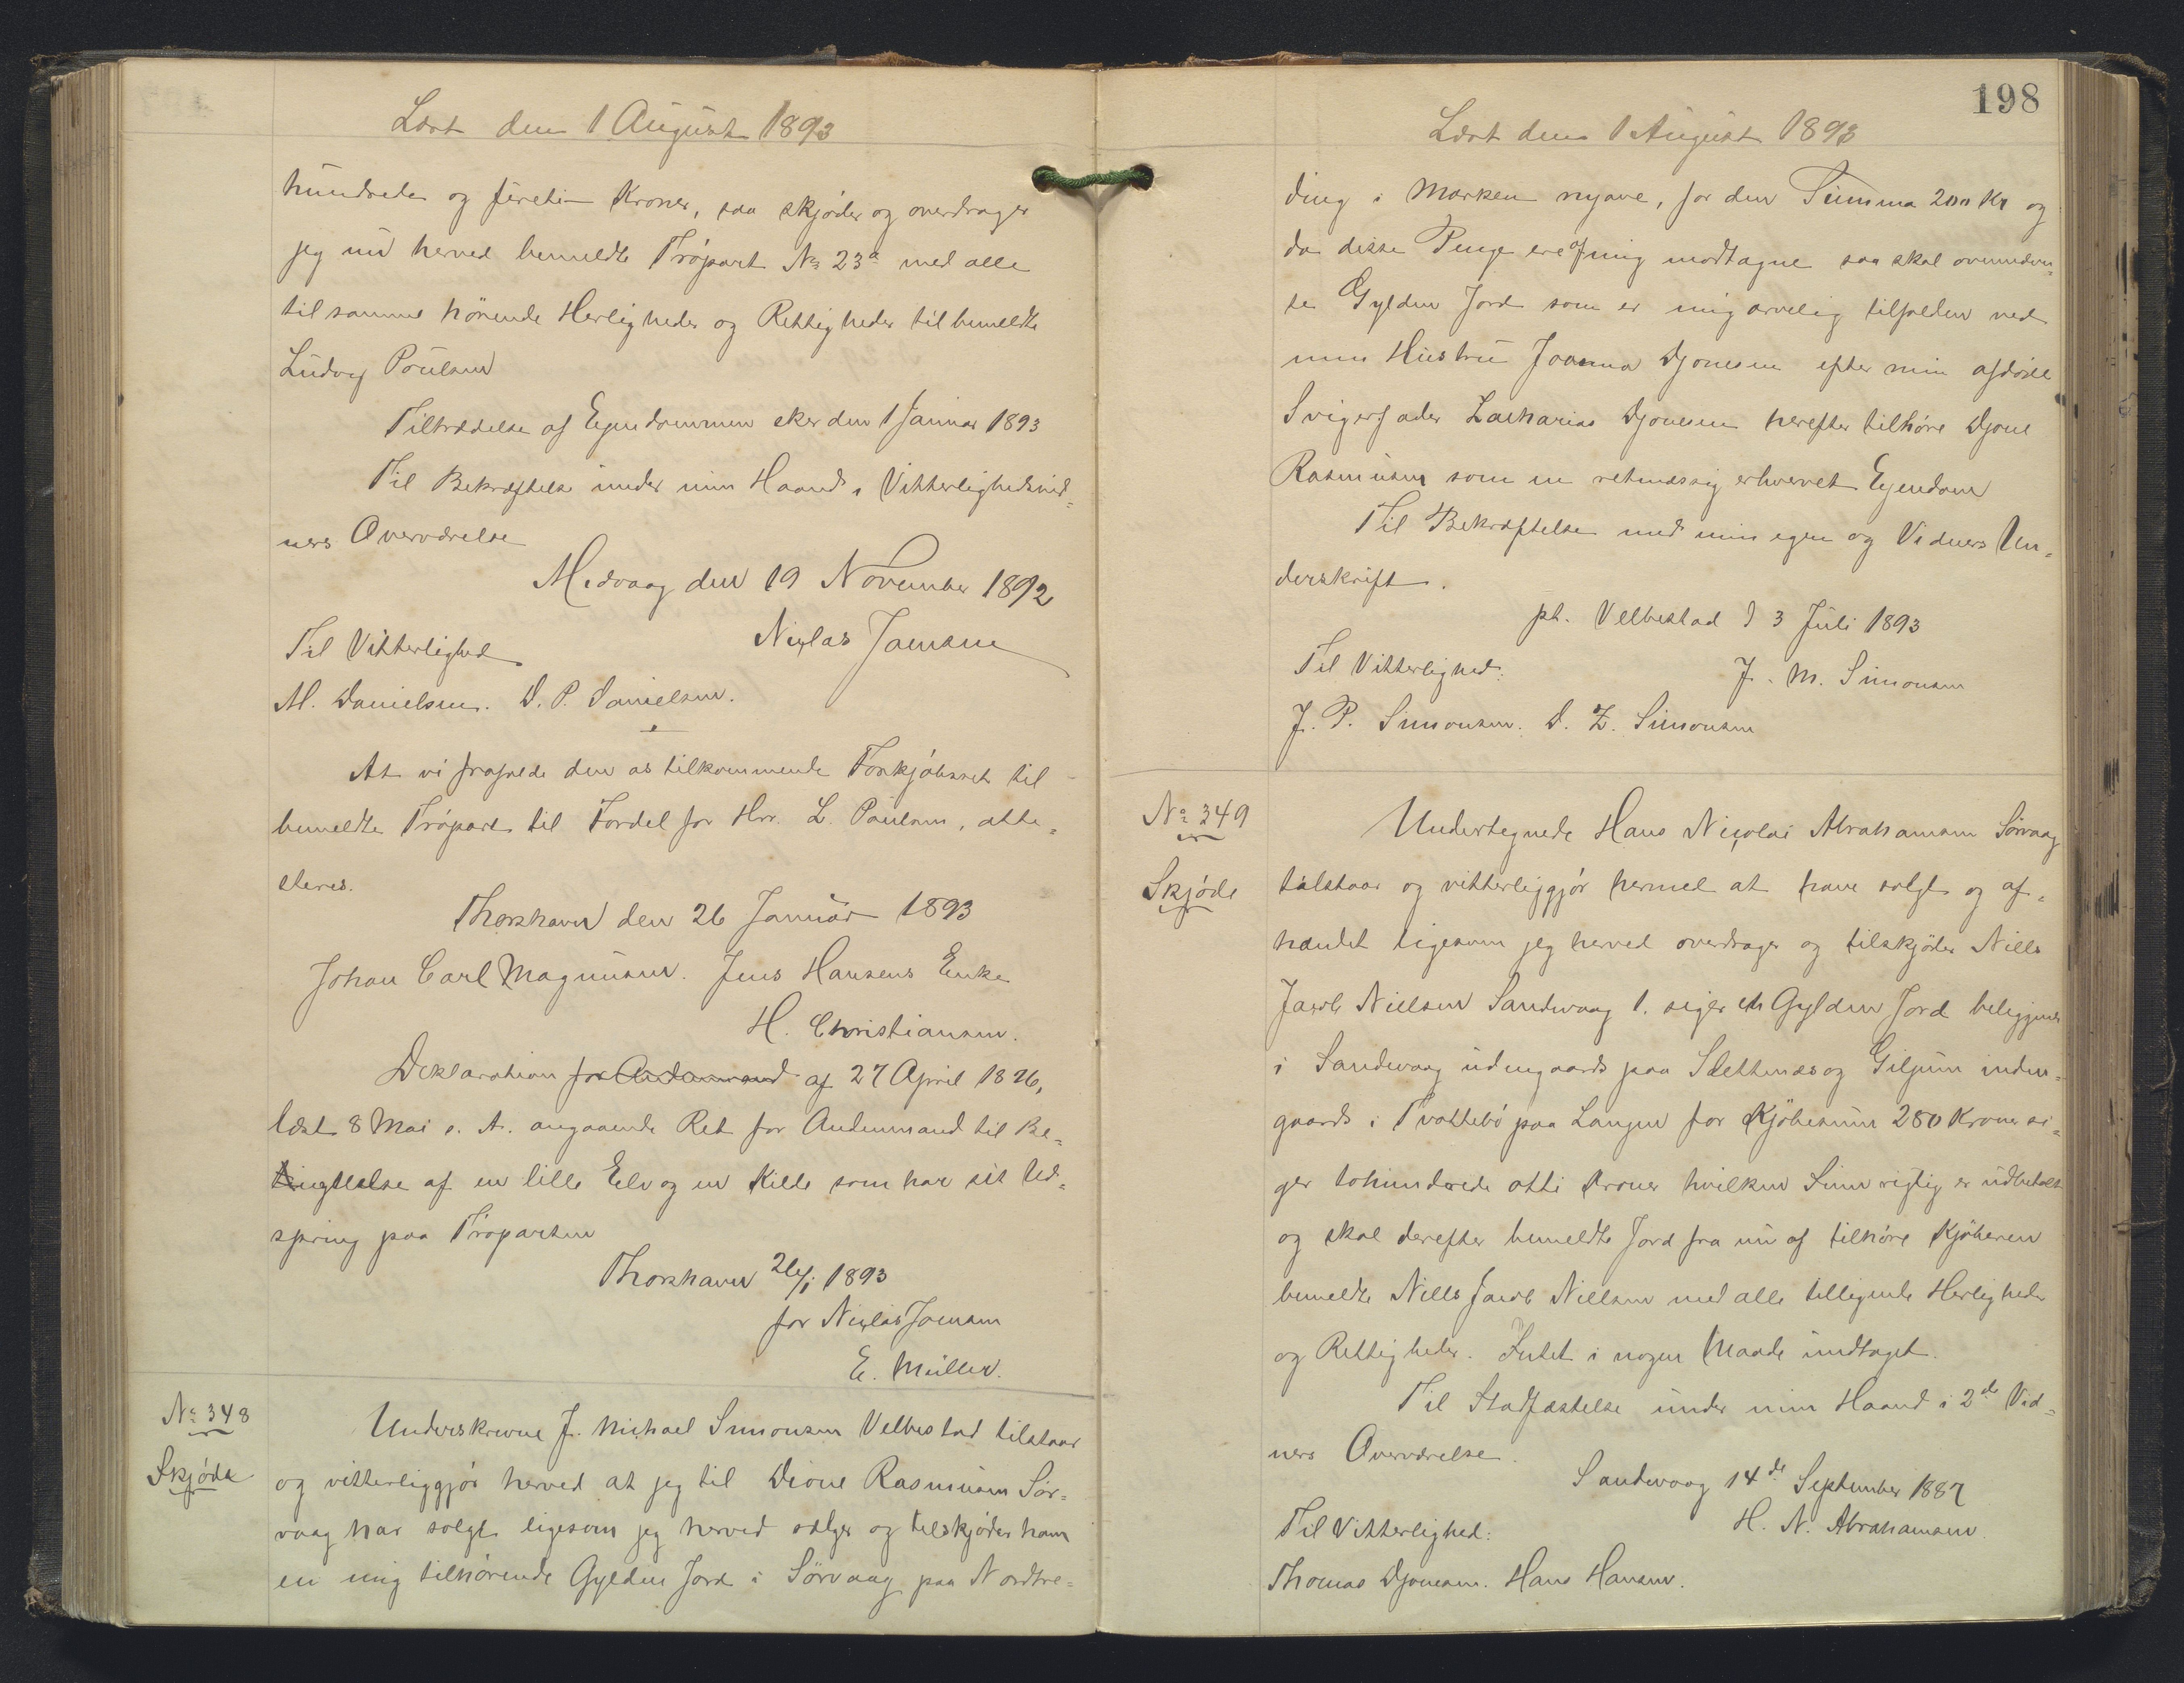 Læst den 1 August 1893
hundrede og fireti Kroner, saa skjøder og overdrager
jeg nu herved bemeldte Trøpart No 23a med alle
til samme hørende Herligheder og Rettigheder til bemeldte
Ludvig Poulsen
Tiltrædelse af Ejendommen sker den 1 Januar 1893
Til Bekræftelse under min Haand i Vitterlighedsvid-
ners Overværelse
Midvaag den 19 November 1892
Niclas Joensen
Til Vitterlighed
M. Danielsen. D. P. Danielsen.
At vi frafalde den os tilkommende Forkjøbsret til
bemeldte Trøpart til Fordel for Hr. L. Poulsen, atte-
steres.
Thorshavn den 26 Januar 1893
Johan Carl Magnussen. Jens Hansens Enke
H. Christiansen.
Deklaration for Andenmand af 27 April 1826,
læst 8 Mai s. A. angaaende Ret for Andenmand til Be-
af en lille Elv og en Kilde som har sit Ud-
spring paa Trøparten
Thorshavn 26/1 1893
for Niclas Joensen
E. Müller.
No 348
Skjøde
Underskrevne J. Michael Simonsen Velbestad tilstaar
og vitterliggjør herved at jeg til Dione Rasmussen Sør-
vaag har solgt ligesom jeg herved sælger og tilskjøder ham
en mig tilhørende Gylden Jord i Sørvaag paa Nordtre-
198
Læst den 1 August 1893
ding i Marken nyave, for den Summa 200 Kr og
da disse Penge ere af mig modtagne saa skal ovennævn-
te Gylden Jord som er mig arvelig tilfalden ved
min Hustru Joanna Djonesen efter min afdøde
Svigerfader Zacharias Djonesen herefter tilhøre Djone
Rasmusen som en retmæssig erhvervet Ejendom
Til Bekræftelse med min egen og Vidners Un-
derskrift.
pt. Velbestad d 3 Juli 1893
Til Vitterlighed:
J. M. Simonsen
J. P. Simonsen. D. Z. Simonsen
No 349
Skjøde
Undertegnede Hans Nicolai Abrahamsen Sørvaag
tilstaar og vitterliggjør hermed at have solgt og af-
hændet ligesom jeg herved overdrager og tilskjøder Niels
Jacob Nielsen Sandevaag 1. siger en Gylden Jord beliggende
i Sandevaag udengaards paa Slettenæs og Giljum inden-
gaards i Tvottebø paa Langen for Kjøbesum 280 Kroner si-
ger tohundrede otti Kroner hvilken Sum rigtig er udbetalt
og skal derefter bemeldte Jord fra nu af tilhøre Kjøberen
bemeldte Niels Jacob Nielsen med alle tilliggende Herligheder
og Rettigheder. Intet i nogen Maade undtaget.
Til Stadfæstelse under min Haand i 2de Vid-
ners Overværelse.
Sandevaag 14de September 1887
H. N. Abrahamsen.
Til Vitterlighed:
Thomas Djonesen. Hans Hansen.